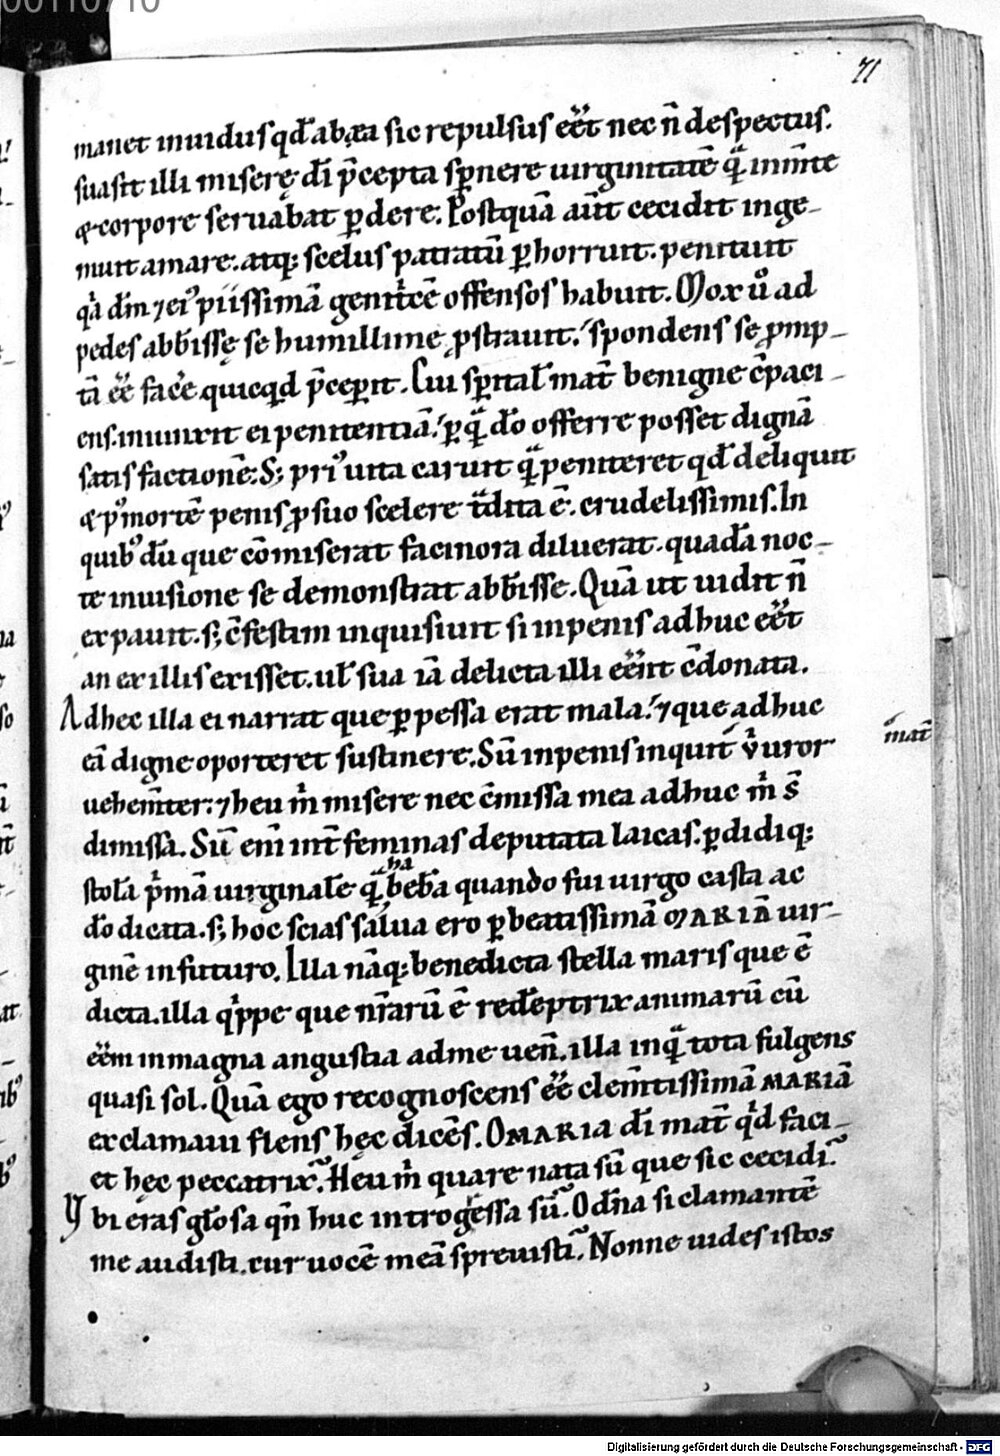 00110710
71
manet inuidus qđ ab ea sic repulsus eēt nec n̄ despectus.
suasit illi miserę dī p̄cepta sp̄nere uirginitatē q̄ in m̄te
& corpore seruabat ꝑdere. Postquā aūt cecidit inge-
muit amare. atq; scelus patratū ꝑhorruit. penituit
qᵃ dm̄ ⁊ eiꝰ piissimā genitͥcē offensos habuit. Mox uͦ ad
pedes abb̄issę se humillime ꝓstrauit. spondens se ꝓmp-
tā eē̄ fac̄e quicqđ p̄cep̄it. Cui sp̄ital̄ mat̄ benigne c̄paci-
ens. iniunxit ei penitentiā. ꝑ qᵃ̄ dō offerre posset dignā
satisfactionē. S; priꝰ uita caruit qᵃ̄ peniteret qđ deliquit
& pꝰ mortē penis ꝓ suo scelere tᵃdita ē. crudelissimis. In
quibꝰ dū que cōmiserat facinora diluerat. quadā noc-
te in uisione se demonstrat abb̄isse. Quā ut uidit n̄
expauit. s; c̄festim inquisiuit si in penis adhuc eēt
an ex illis exisset. ul̄ sua iā delicta illi eēnt c̄donata.
Ad hec illa ei narrat que ꝑpessa erat mala. ⁊ que adhuc
eā digne oporteret sustinere. Sū in penis inquit uͥ uror
mat̄
uehem̄ter. ⁊ heu m̄ misere nec c̄missa mea adhuc m̄ s̄
dimissa. Sū eni int̄ feminas deputata laicas. ꝑdidiq;
stolā pͥmā uirginalē qᵃ̄ habebā quando fui virgo casta ac
dō dicata. s; hoc scias salua ero ꝑ beatissimā MARIĀ uir-
ginē in futuro. Illa nāq; benedicta stella maris que ē
dicta. illa qͥppe que nr̄arū ē redēptrix animarū cū
eēm in magna angustia ad me uen̄. illa inqᵃ̄ tota fulgens
quasi sol. Quā ego recognoscens eē̄ clem̄tissimā MARIĀ
exclamaui flens hęc dicēs. O MARIA dī mat̄ qͥd faci-
et hęc peccatrix. Heu m̄ quare nata sū que sic cecidi.
Vbi eras gl̄osa qn̄ huc introgressa sū. O dn̄a si clamantē
me audisti. cur uocē meā spreuisti. Nonne uides istos
Digitalisierung gefördert durch die Deutsche Forschungsgemeinschaft - DFG